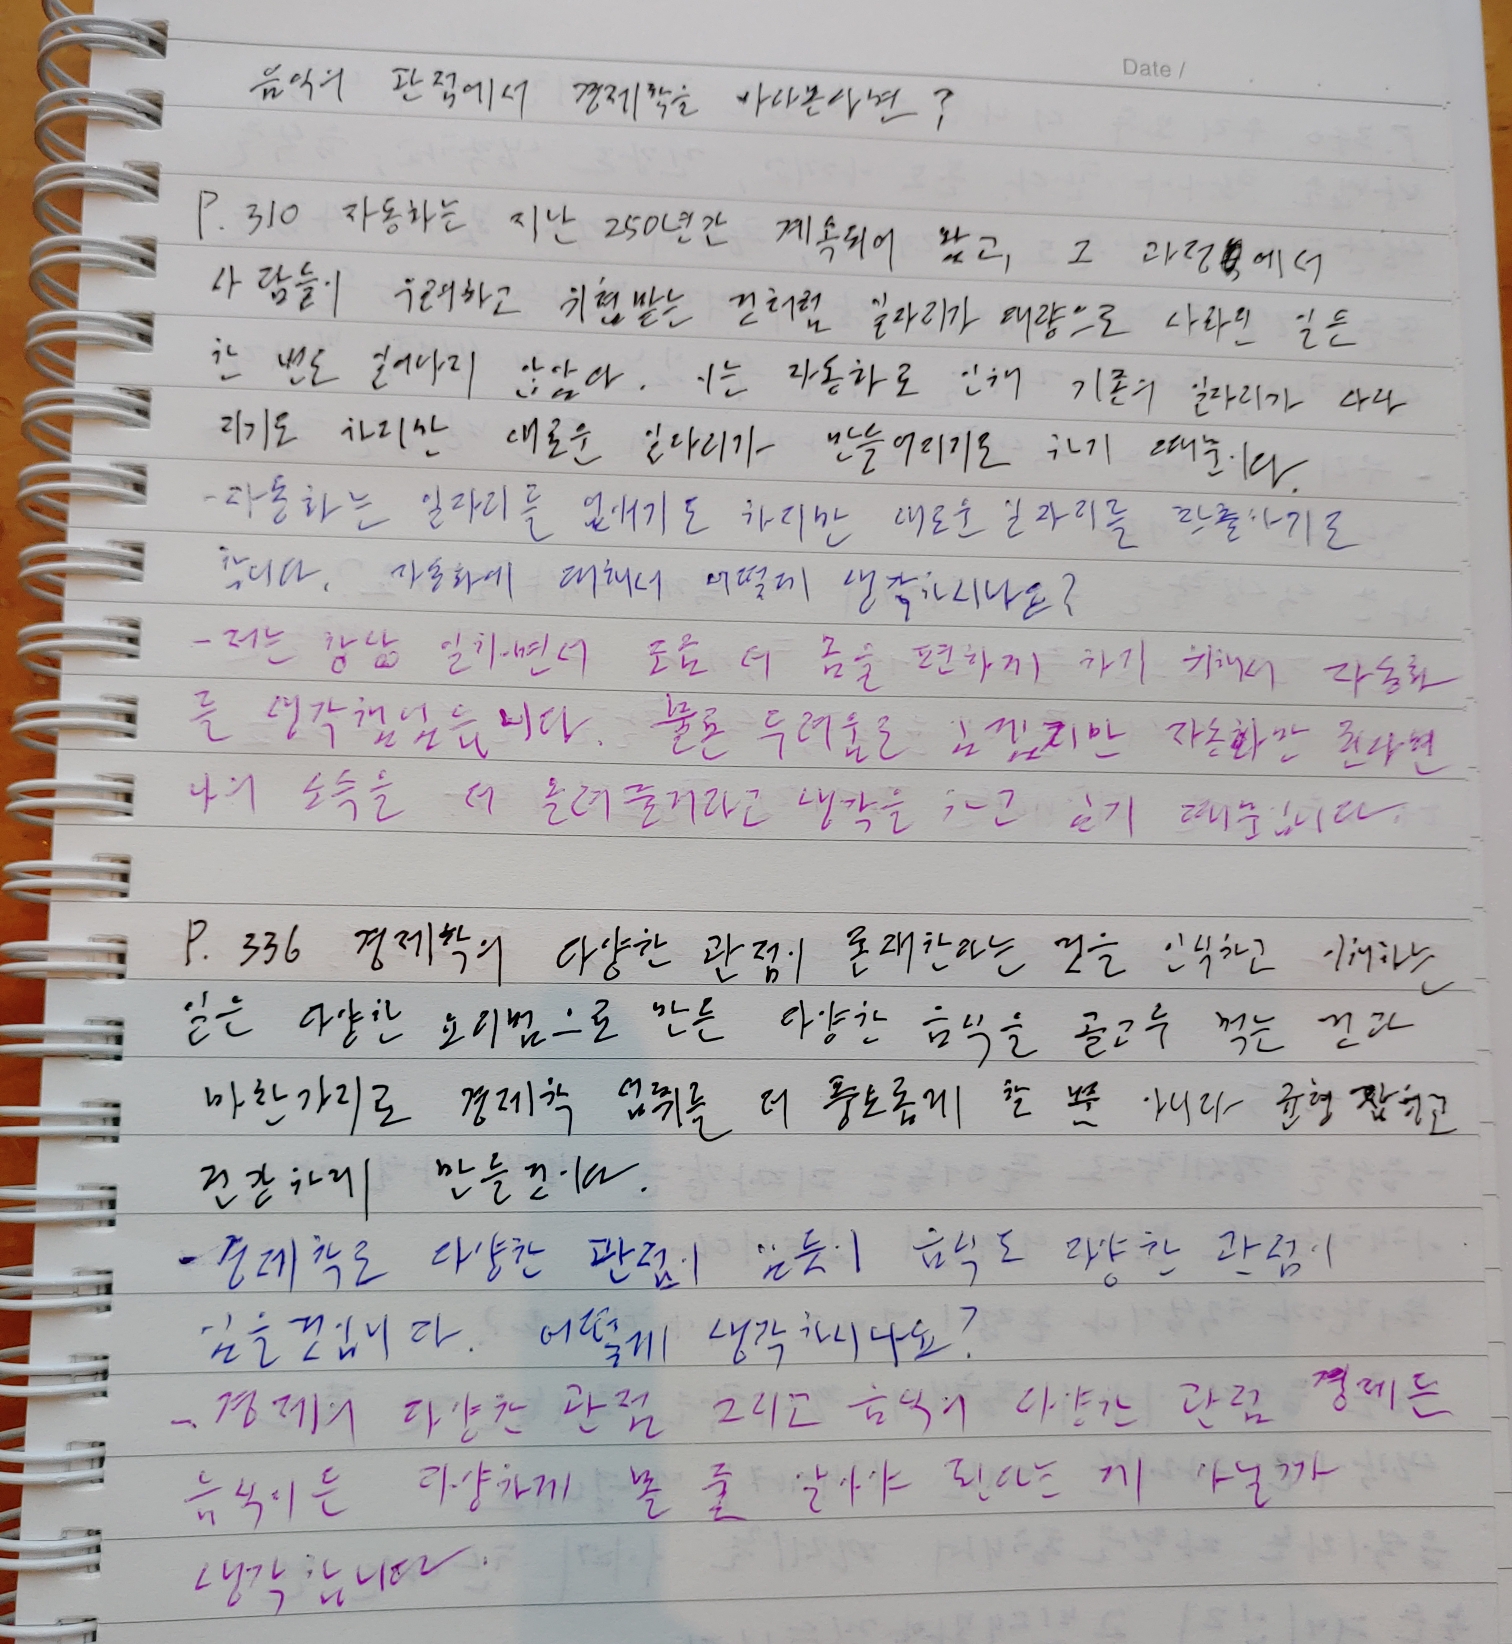 Date /
음식의 관점에서 경제학을 바라본다면?
P. 310 자동화는 지난 250년간 계속되어 왔고, 그 과정에서
사람들이 우려하고 위협받는 것처럼 일자리가 대량으로 사라진 일은
한 번도 일어나지 않았다. 이는 자동화로 인해 기존의 일자리가 사라
지기도 하지만 새로운 일자리가 만들어지기도 하기 때문이다.
-자동화는 일자리를 없애기도 하지만 새로운 일자리를 창출하기도
합니다. 자동화에 대해서 어떻게 생각하시나요?
-저는 항상 일하면서 조금 더 몸을 편하게 하기 위해서 자동화
를 생각했었습니다. 물론 두려움도 있겠지만 자동화만 된다면
나의 소득을 더 올려줄거라고 생각을 하고 있기 때문입니다.
P. 336 경제학의 다양한 관점이 존재한다는 것을 인식하고 이해하는
일은 다양한 요리법으로 만든 다양한 음식을 골고루 먹는 것과
마찬가지로 경제학 섭취를 더 풍요롭게 할 뿐 아니라 균형 잡히고
건강하게 만들 것이다.
-경제학도 다양한 관점이 있듯이 음식도 다양한 관점이
있을것입니다. 어떻게 생각하시나요?
-경제의 다양한 관점 그리고 음식의 다양한 관점 경제든
음식이든 다양하게 볼 줄 알아야 된다는 게 아닐까
생각합니다.